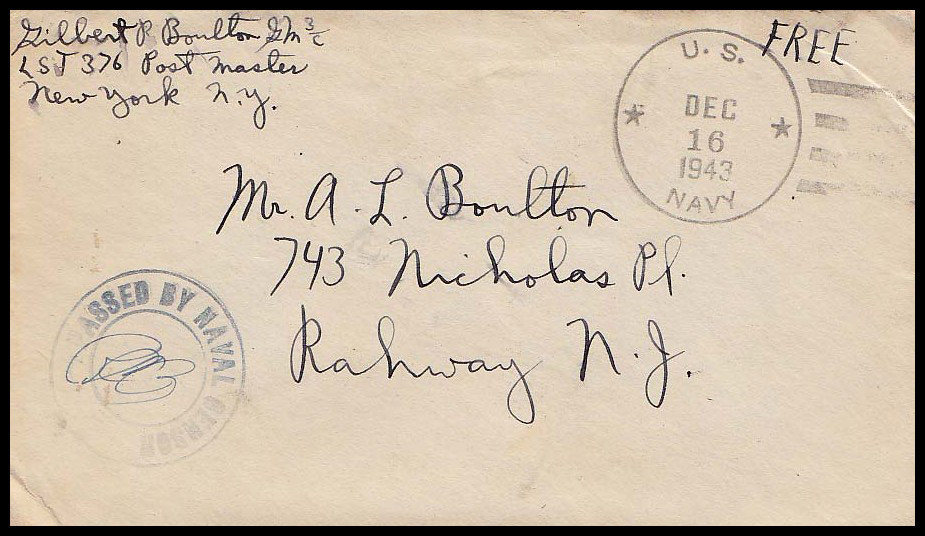 Gilbert P. Boulton GM 3/c
LST 376 Post Master
New York N.Y.
FREE
U. S.
DEC
16
1943
NAVY
Mr. A. L. Boulton
743 Nicholas Pl.
Rahway N.J.
PASSED BY NAVAL CENSOR